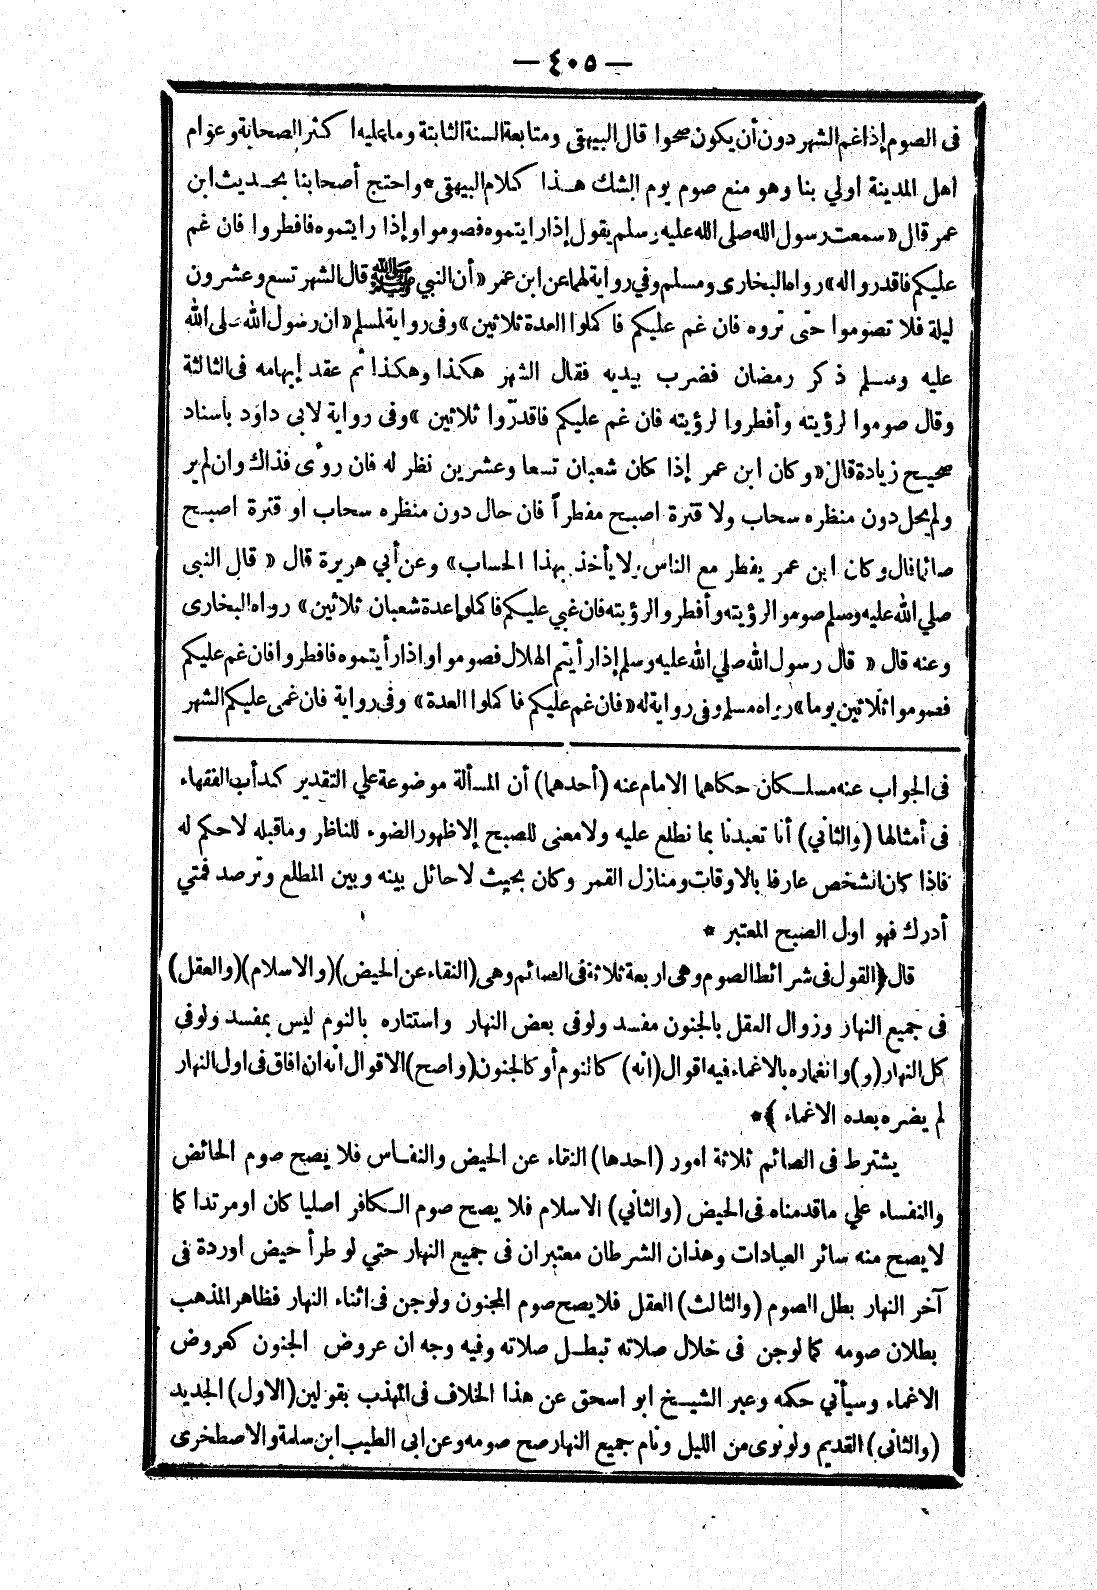 — ٤٠٥ —
فى الصوم إذا غم الشهر دون أن يكون صحوا قال البيهقى ومتابعة السنة الثابتة وما عليه ا كثر الصحابة وعوام
اهل المدينة اولي بنا وهو منع صوم يوم الشك هـذا كلام البيهقى * واحتج أصحابنا بحـديث ابن
عمر قال « سمعت رسول الله صلى الله عليه وسلم يقول إذا رايتموه فصوموا وإذا رايتموه فافطروا فان غم
عليكم فاقدروا له » رواه البخارى ومسلم وفي رواية لهما عن ابن عمر « أن النبي ﷺ قال الشهر تسع وعشرون
ليلة فلا تصوموا حتى تروه فان غم عليكم فا كملوا العدة ثلاثين » وفى رواية لمسلم « ان رسول الله صلى الله
عليه وسـلم ذ كر رمضان فضرب بيديه فقال الشهر هكذا وهكذا ثم عقد إبهامه فى الثالثة
وقال صوموا لرؤيته وأفطروا لرؤيته فان غم عليكم فاقدرّوا ثلاثين » وفى رواية لابى داود باسناد
صحيـح زيادة قال « وكان ابن عمر إذا كان شعبان تسعا وعشرين نظر له فان روءى فذاك وان لم ير
ولم يحل دون منظره سحاب ولا قترة اصبـح مفطراً فان حال دون منظره سحاب او قترة اصبـح
صائما قال وكان ابن عمر يفطر مع الناس ولا يأخذ بهذا الحساب » وعن أبي هريرة قال « قال النبى
صلي الله عليه وسلم صوموا لرؤيته وأفطروا لرؤيته فان غبي عليكم فا كملوا عدة شعبان ثلاثين » رواه البخارى
وعنه قال « قال رسول الله صلي الله عليه وسلم إذا رأيتم الهلال فصوموا واذا رأيتموه فافطروا فان غم عليكم
فصوموا ثلاثين يوما » رواه مسلم وفى رواية له « فان غم عليكم فا كملوا العدة » وفى رواية فان غمى عليكم الشهر
فى الجواب عنه مسلـكان حكاهما الامام عنه ( أحدهما ) أن المسألة موضوعة علي التقدير كدأب الفقهاء
فى أمثالها ( والثاني ) أنا تعبدنا بما نطلع عليه ولا معنى للصبح إلا ظهور الضوء للناظر وما قبله لا حكم له
فاذا كان الشخص عارفا بالاوقات ومنازل القمر وكان بحيث لا حائل بينه وبين المطلع وترصد فمتي
أدرك فهو اول الصبح المعتبر *
قال ﴿ القول فى شرائط الصوم وهى اربعة ثلاثة فى الصائم وهى ( النقاء عن الحيض ) ( والاسلام ) ( والعقل )
فى جميع النهار وزوال العقل بالجنون مفسد ولو فى بعض النهار واستتاره بالنوم ليس بمفسد ولو في
كل النهار ( و ) وانغماره بالاغماء فيه اقوال ( انه ) كالنوم أو كالجنون ( واصح ) الاقوال انه ان افاق فى اول النهار
لم يضره بعده الاغماء ﴾ *
يشترط فى الصائم ثلاثة امور ( احدها ) النقاء عن الحيض والنفـاس فلا يصح صوم الحائض
والنفساء علي ما قدمناه فى الحيض ( والثاني ) الاسلام فلا يصح صوم الـكافر اصليا كان او مرتدا كما
لا يصح منه سائر العبادات وهذان الشرطان معتبران فى جميع النهار حتي لو طرأ حيض اوردة فى
آخر النهار بطل الصوم ( والثالث ) العقل فلا يصح صوم المجنون ولو جن فى اثناء النهار فظاهر المذهب
بطلان صومه كما لو جن فى خلال صلاته تبطـل صلاته وفيه وجه ان عروض الجنون كعروض
الاغماء وسيأتي حكمه وعبر الشيـخ ابو اسحق عن هذا الخلاف فى المهذب بقولين ( الاول ) الجديد
( والثانى ) القديم ولو نوى من الليل ونام جميع النهار صح صومه وعن ابى الطيب ابن سلمة والاصطخرى